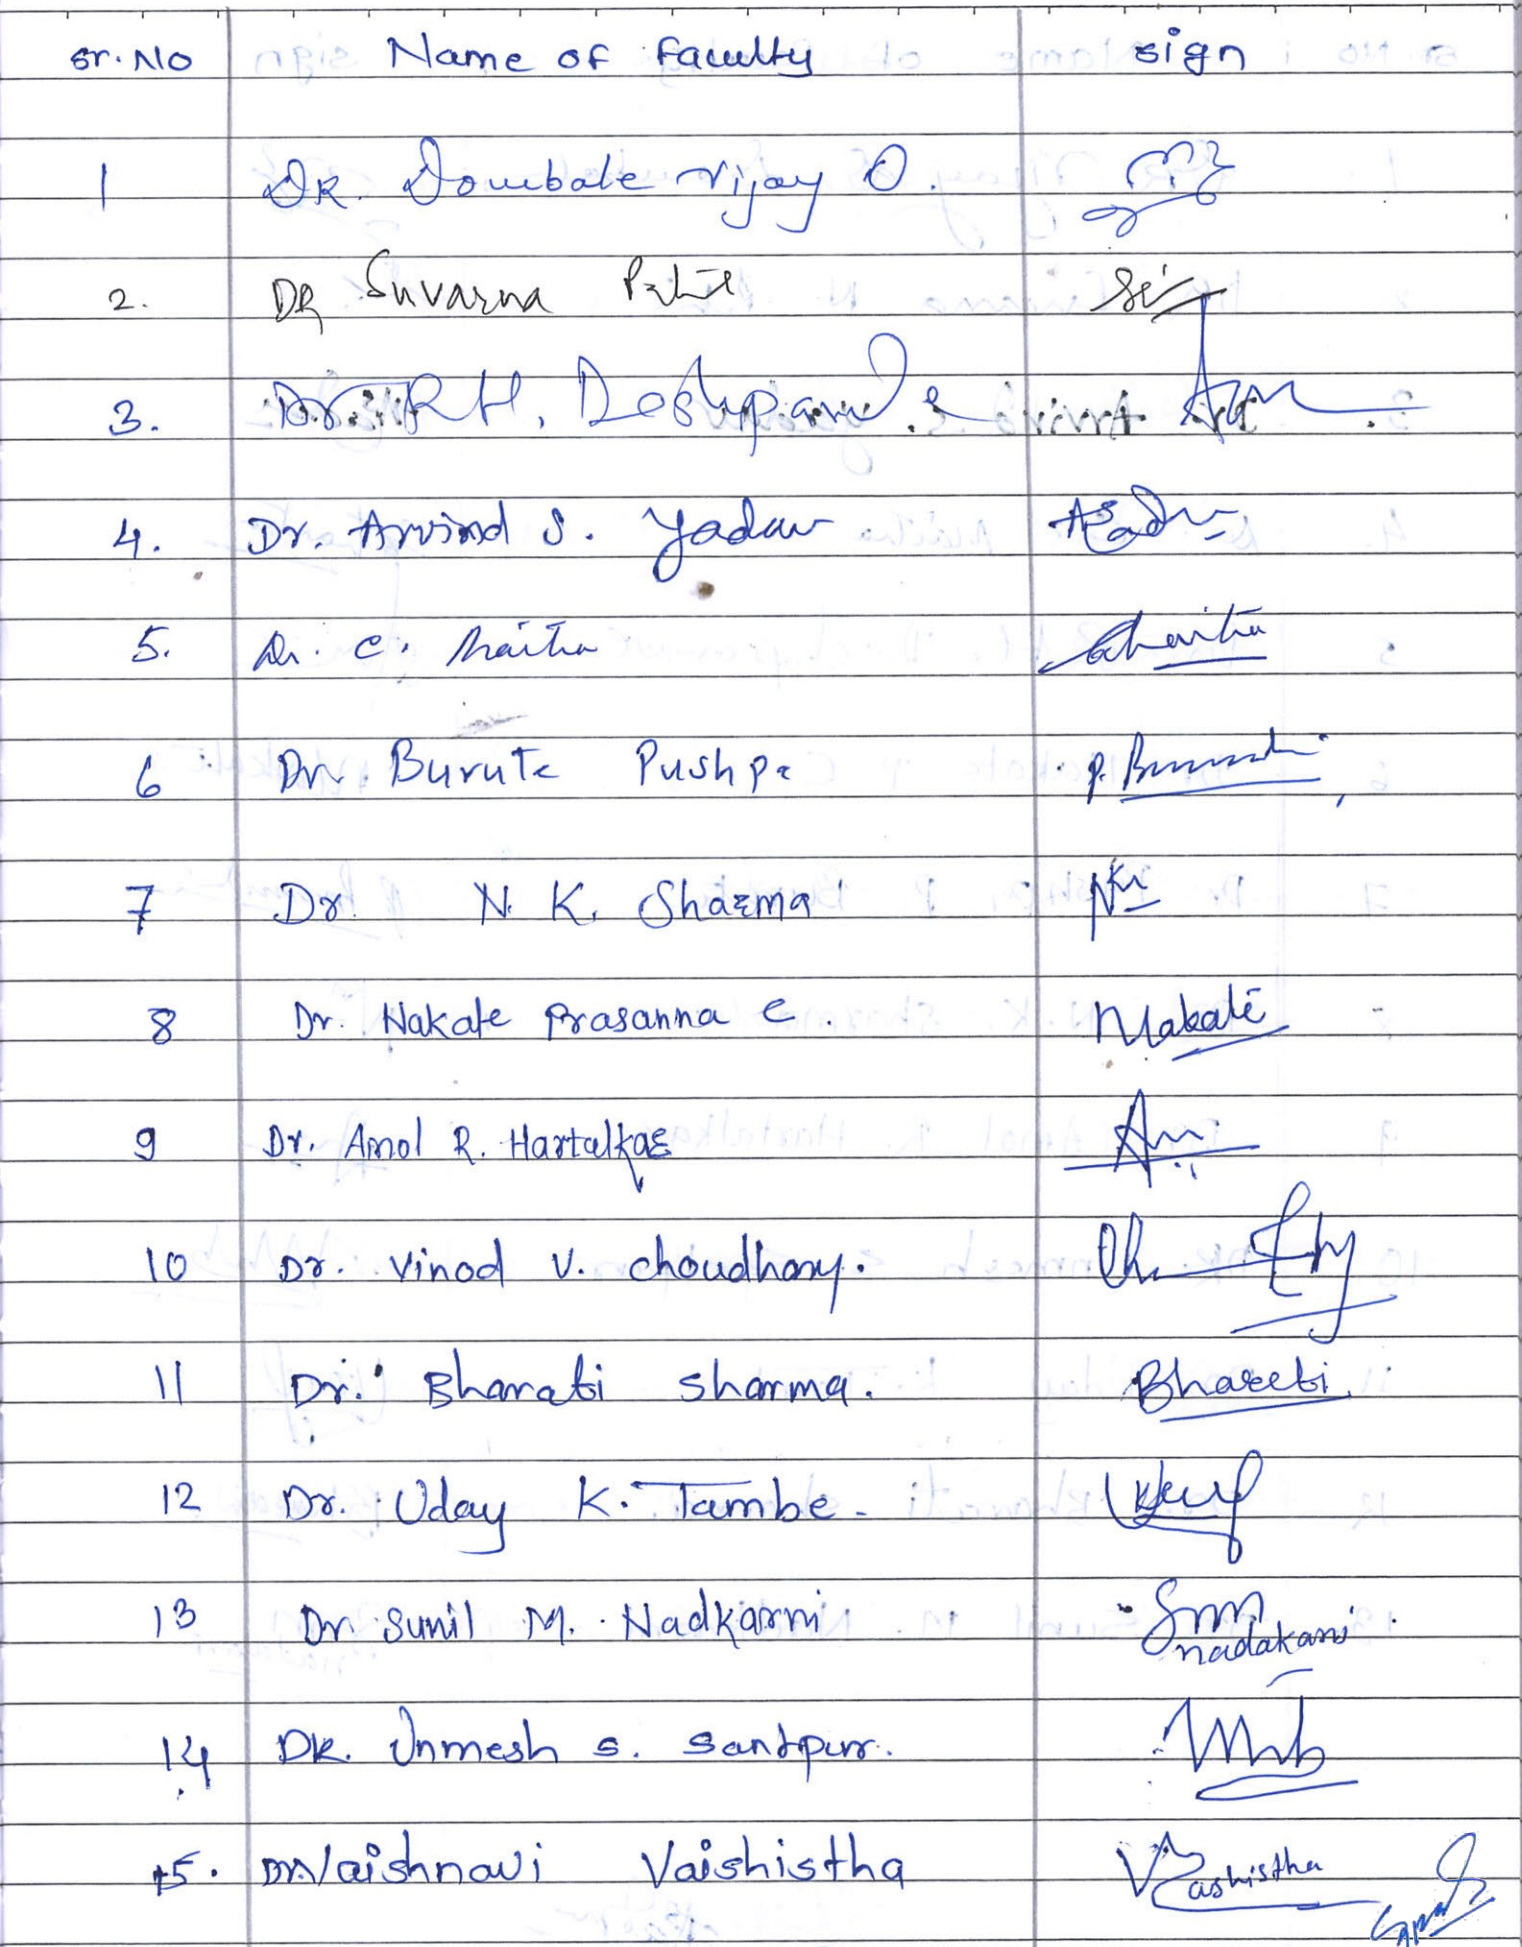 Sr. No Name of faculty sign
1 DR. Dombale Vijay O.
2. DR Suvarna Patil
3. Dr. R H. Deshpande
4. Dr. Arvind S. Yadav
5. Dr. C.
6 Dr. Burute Pushpa P. 
7 Dr. N. K. Sharma NK
8 Dr. Nakate Prasanna C. Nakate
9 Dr. Amol R. Hartalkar
10 Dr. Vinod V. choudhary.
11 Dr. Bharati sharma. Bharati
12 Dr. Uday K. Tambe
13 Dr. Sunil M. Nadkarni nadakarni
14 DR. Unmesh S. Santpur.
15. Dr. Vaishnavi Vaishistha Vashistha